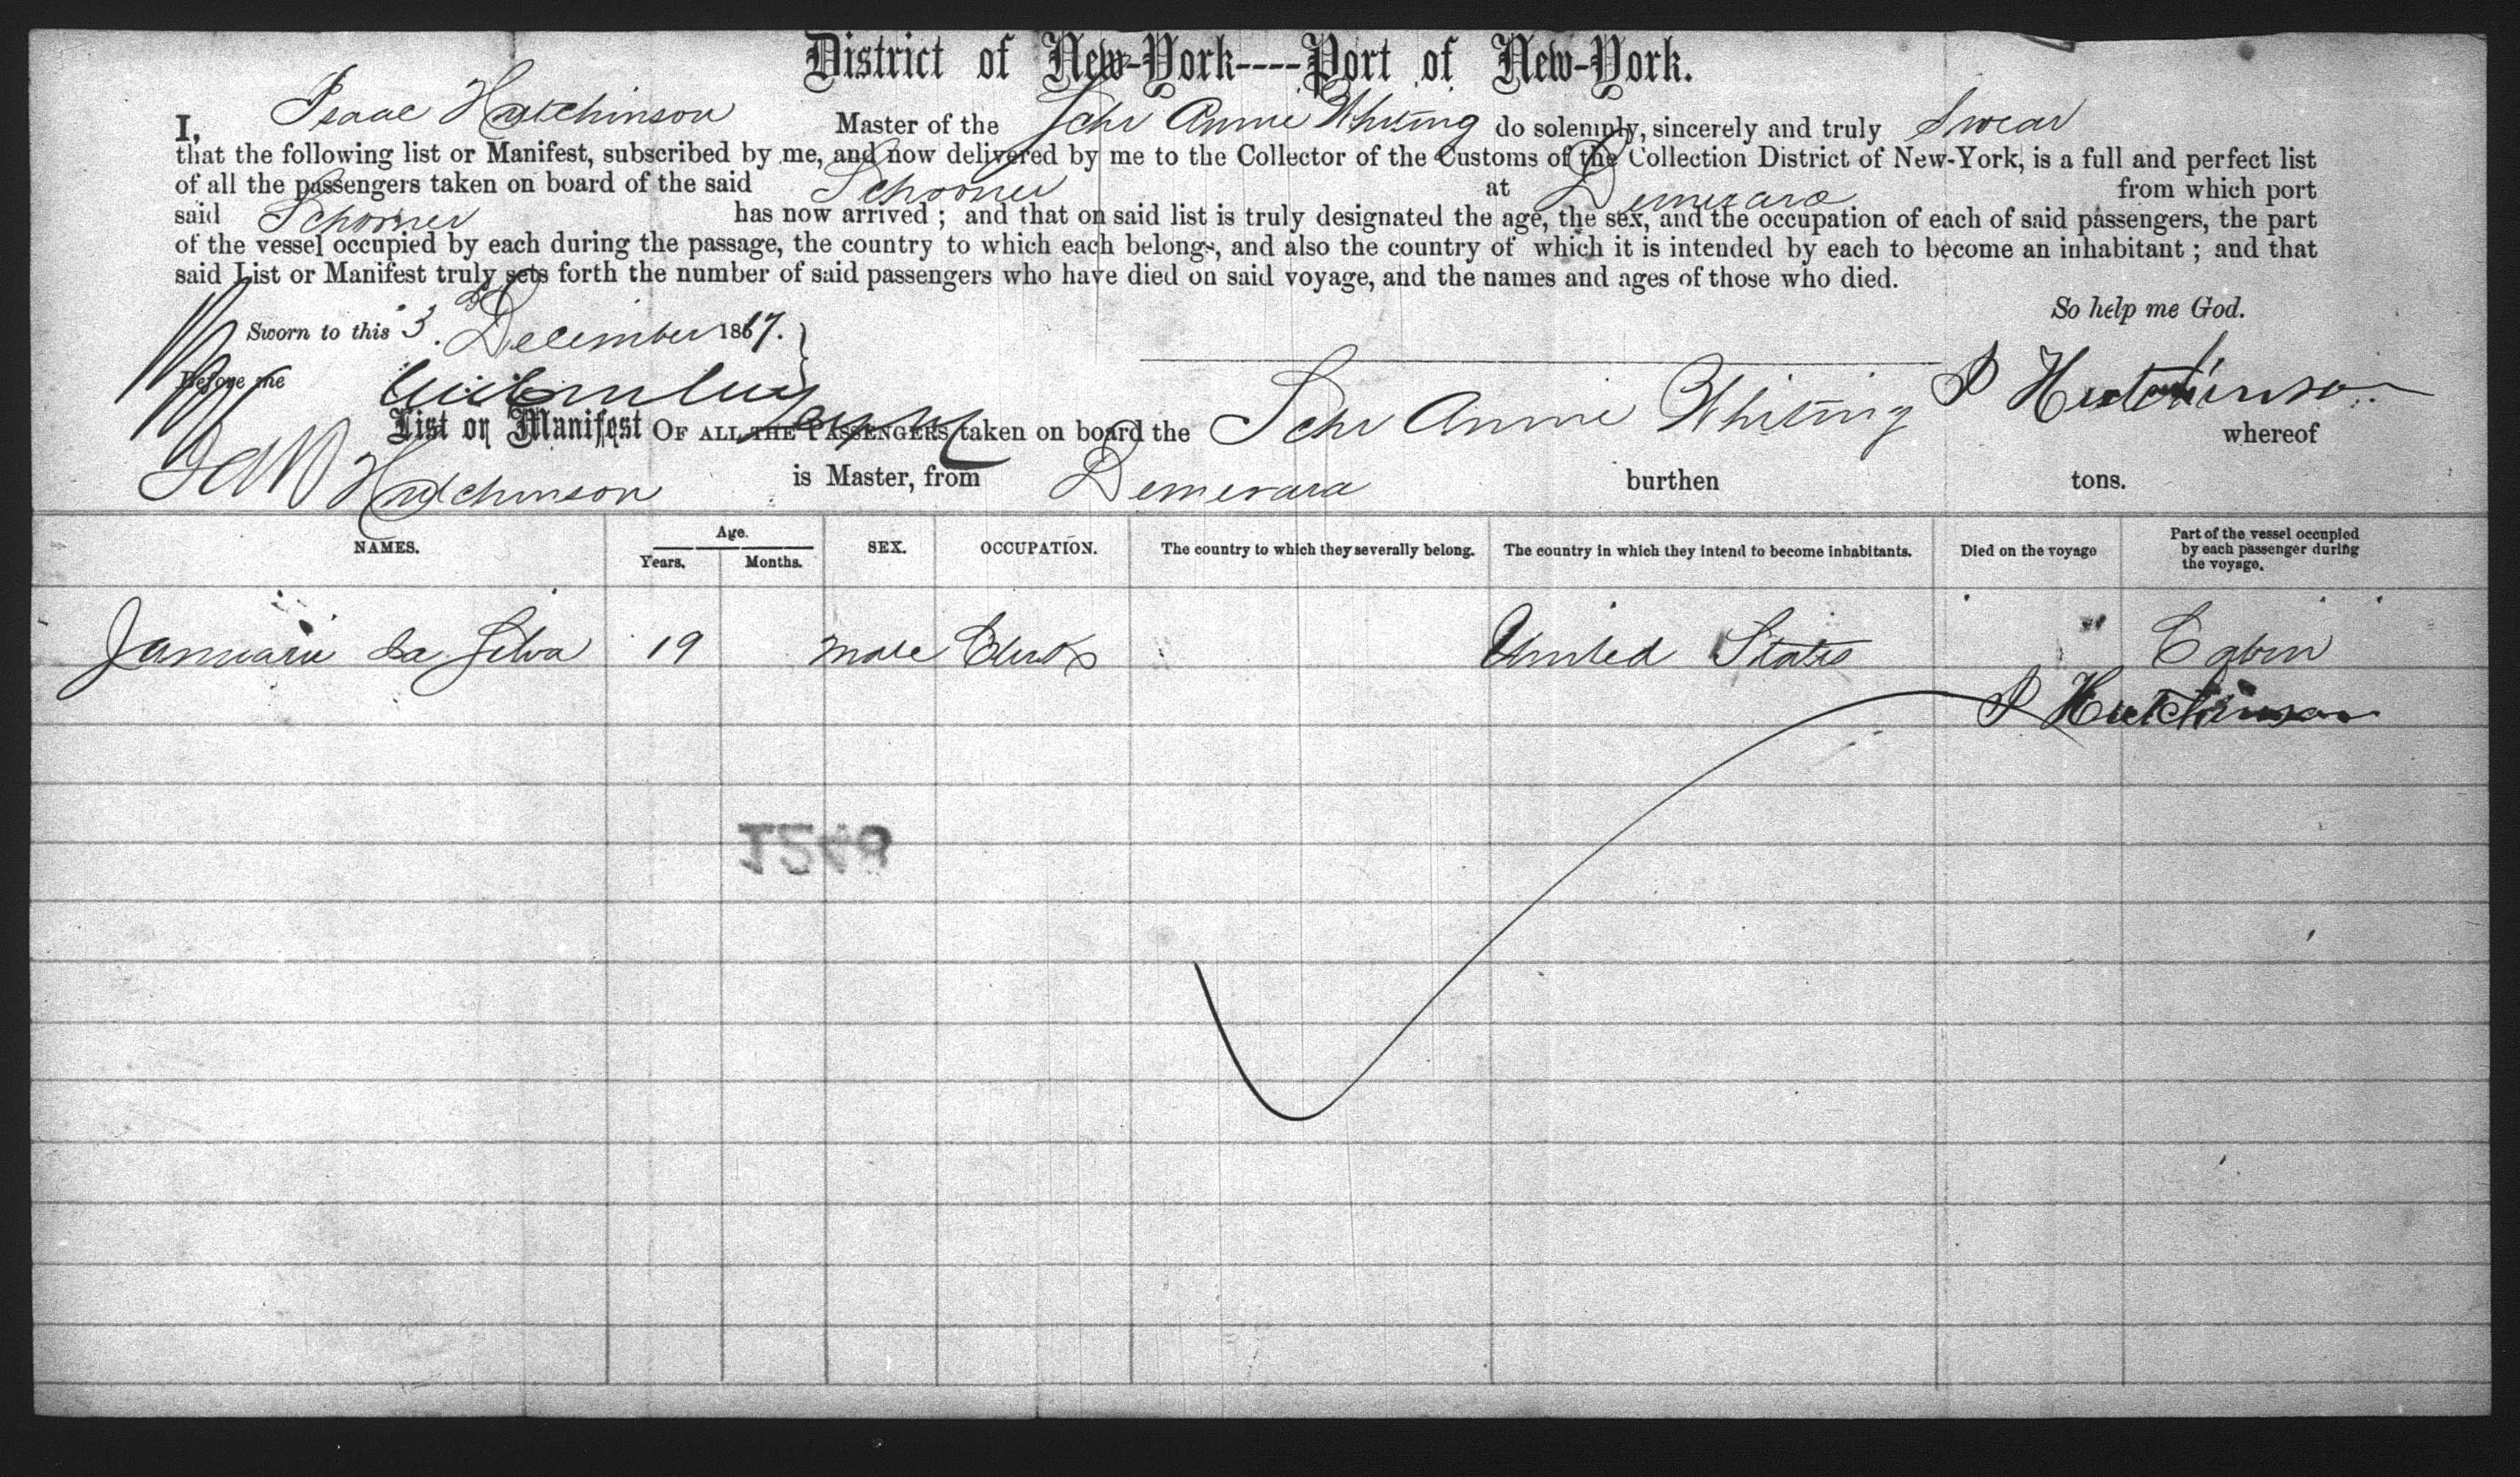 District of New-York----Port of New-York.
I, Isaac Hutchinson Master of the Schr Annie Whiting do solemnly, sincerely and truly Swear
that the following list or Manifest, subscribed by me, and now delivered by me to the Collector of the Customs of the Collection District of New-York, is a full and perfect list
of all the passengers taken on board of the said Schooner at Demerara from which port
said Schooner has now arrived ; and that on said list is truly designated the age, the sex, and the occupation of each of said passengers, the part
of the vessel occupied by each during the passage, the country to which each belongs, and also the country of which it is intended by each to become an inhabitant ; and that
said List or Manifest truly sets forth the number of said passengers who have died on said voyage, and the names and ages of those who died.
So help me God.
Sworn to this 3 December 1867.
Before me
I Hutchinson
List or Manifest OF ALL THE PASSENGERS taken on board the Schr Annie Whiting whereof
Hutchinson is Master, from Demerara burthen tons.
NAMES. Age. Years. Months. SEX. OCCUPATION. The country to which they severally belong. The country in which they intend to become inhabitants. Died on the voyage Part of the vessel occupied by each passenger during the voyage.
da Silva 19 male Clerk United States " Cabin
I Hutchinson